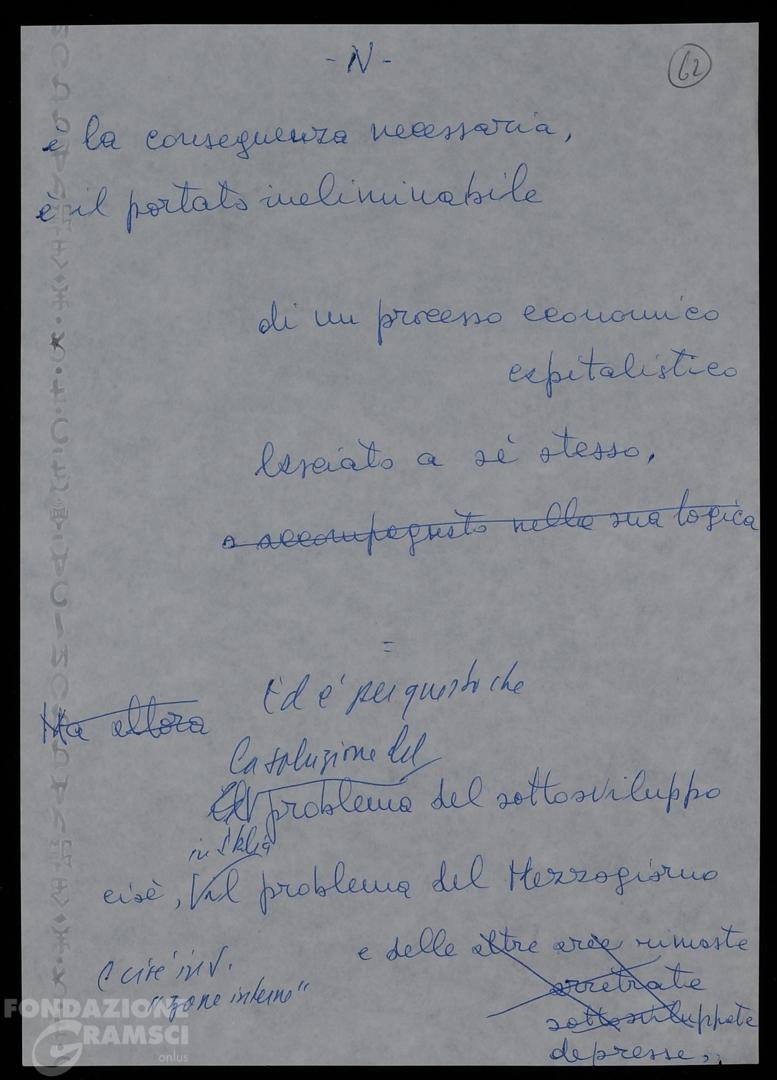 - N -
62
è la conseguenza necessaria,
è il portato ineliminabile
di un processo economico
capitalistico
lasciato a sé stesso,
o accompagnato nella sua logica
=
Ed è per questo che
Ma allora
la soluzione del
problema del sottosviluppo
in Italia
cioè, il problema del Mezzogiorno
e delle altre aree rimaste
e cioè
"zone interne"
arretrate
sottosviluppate
depresse,
FONDAZIONE
GRAMSCI
onlus